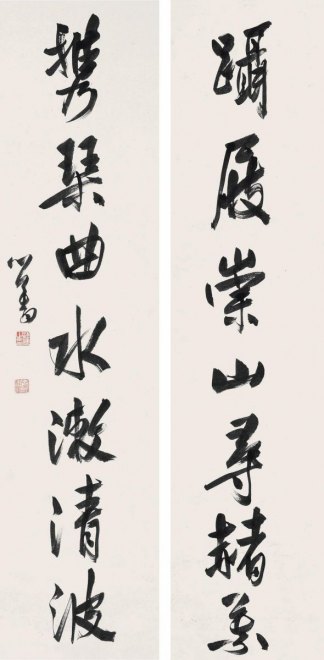 躡屐崇山尋赭
携琴曲水漱清波
心畬